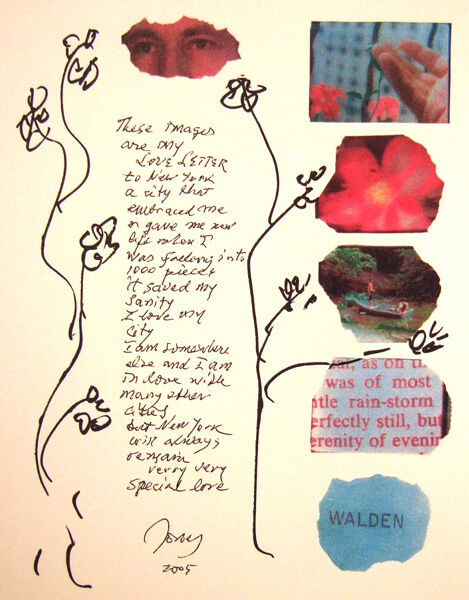 These images
are my
LOVE LETTER
to New York
a city that
embraced me
n gave me new
life when I
was falling into
1000 pieces
it saved my
sanity
I love my
city
I am somewhere
else and I am
in love with
many other
cities
but New York
will always
remain
verry very
special love
Jonas
2005
val, as on
was of most
ntle rain-storm
erfectly still, but
erenity of evenin
WALDEN